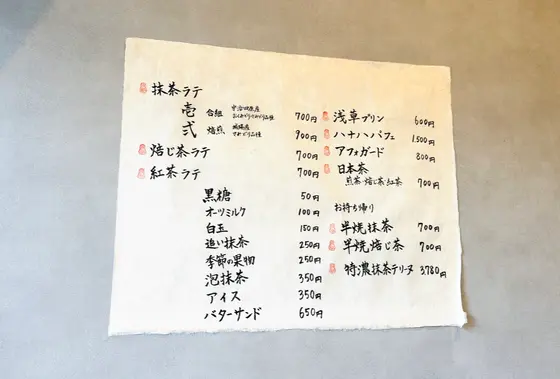 抹茶ラテ
壱 合組 宇治田原産 700円
弐 焙煎 900円
焙じ茶ラテ 700円
紅茶ラテ 700円
黒糖 50円
オーツミルク 100円
白玉 150円
追い抹茶 250円
季節の果物 250円
泡抹茶 350円
アイス 350円
バターサンド 650円
浅草プリン 600円
ハナハパフェ 1,500円
アフォガード 800円
日本茶
煎茶・焙じ茶・紅茶 700円
お持ち帰り
半焼抹茶 700円
半焼焙じ茶 700円
特濃抹茶テリーヌ 3,780円